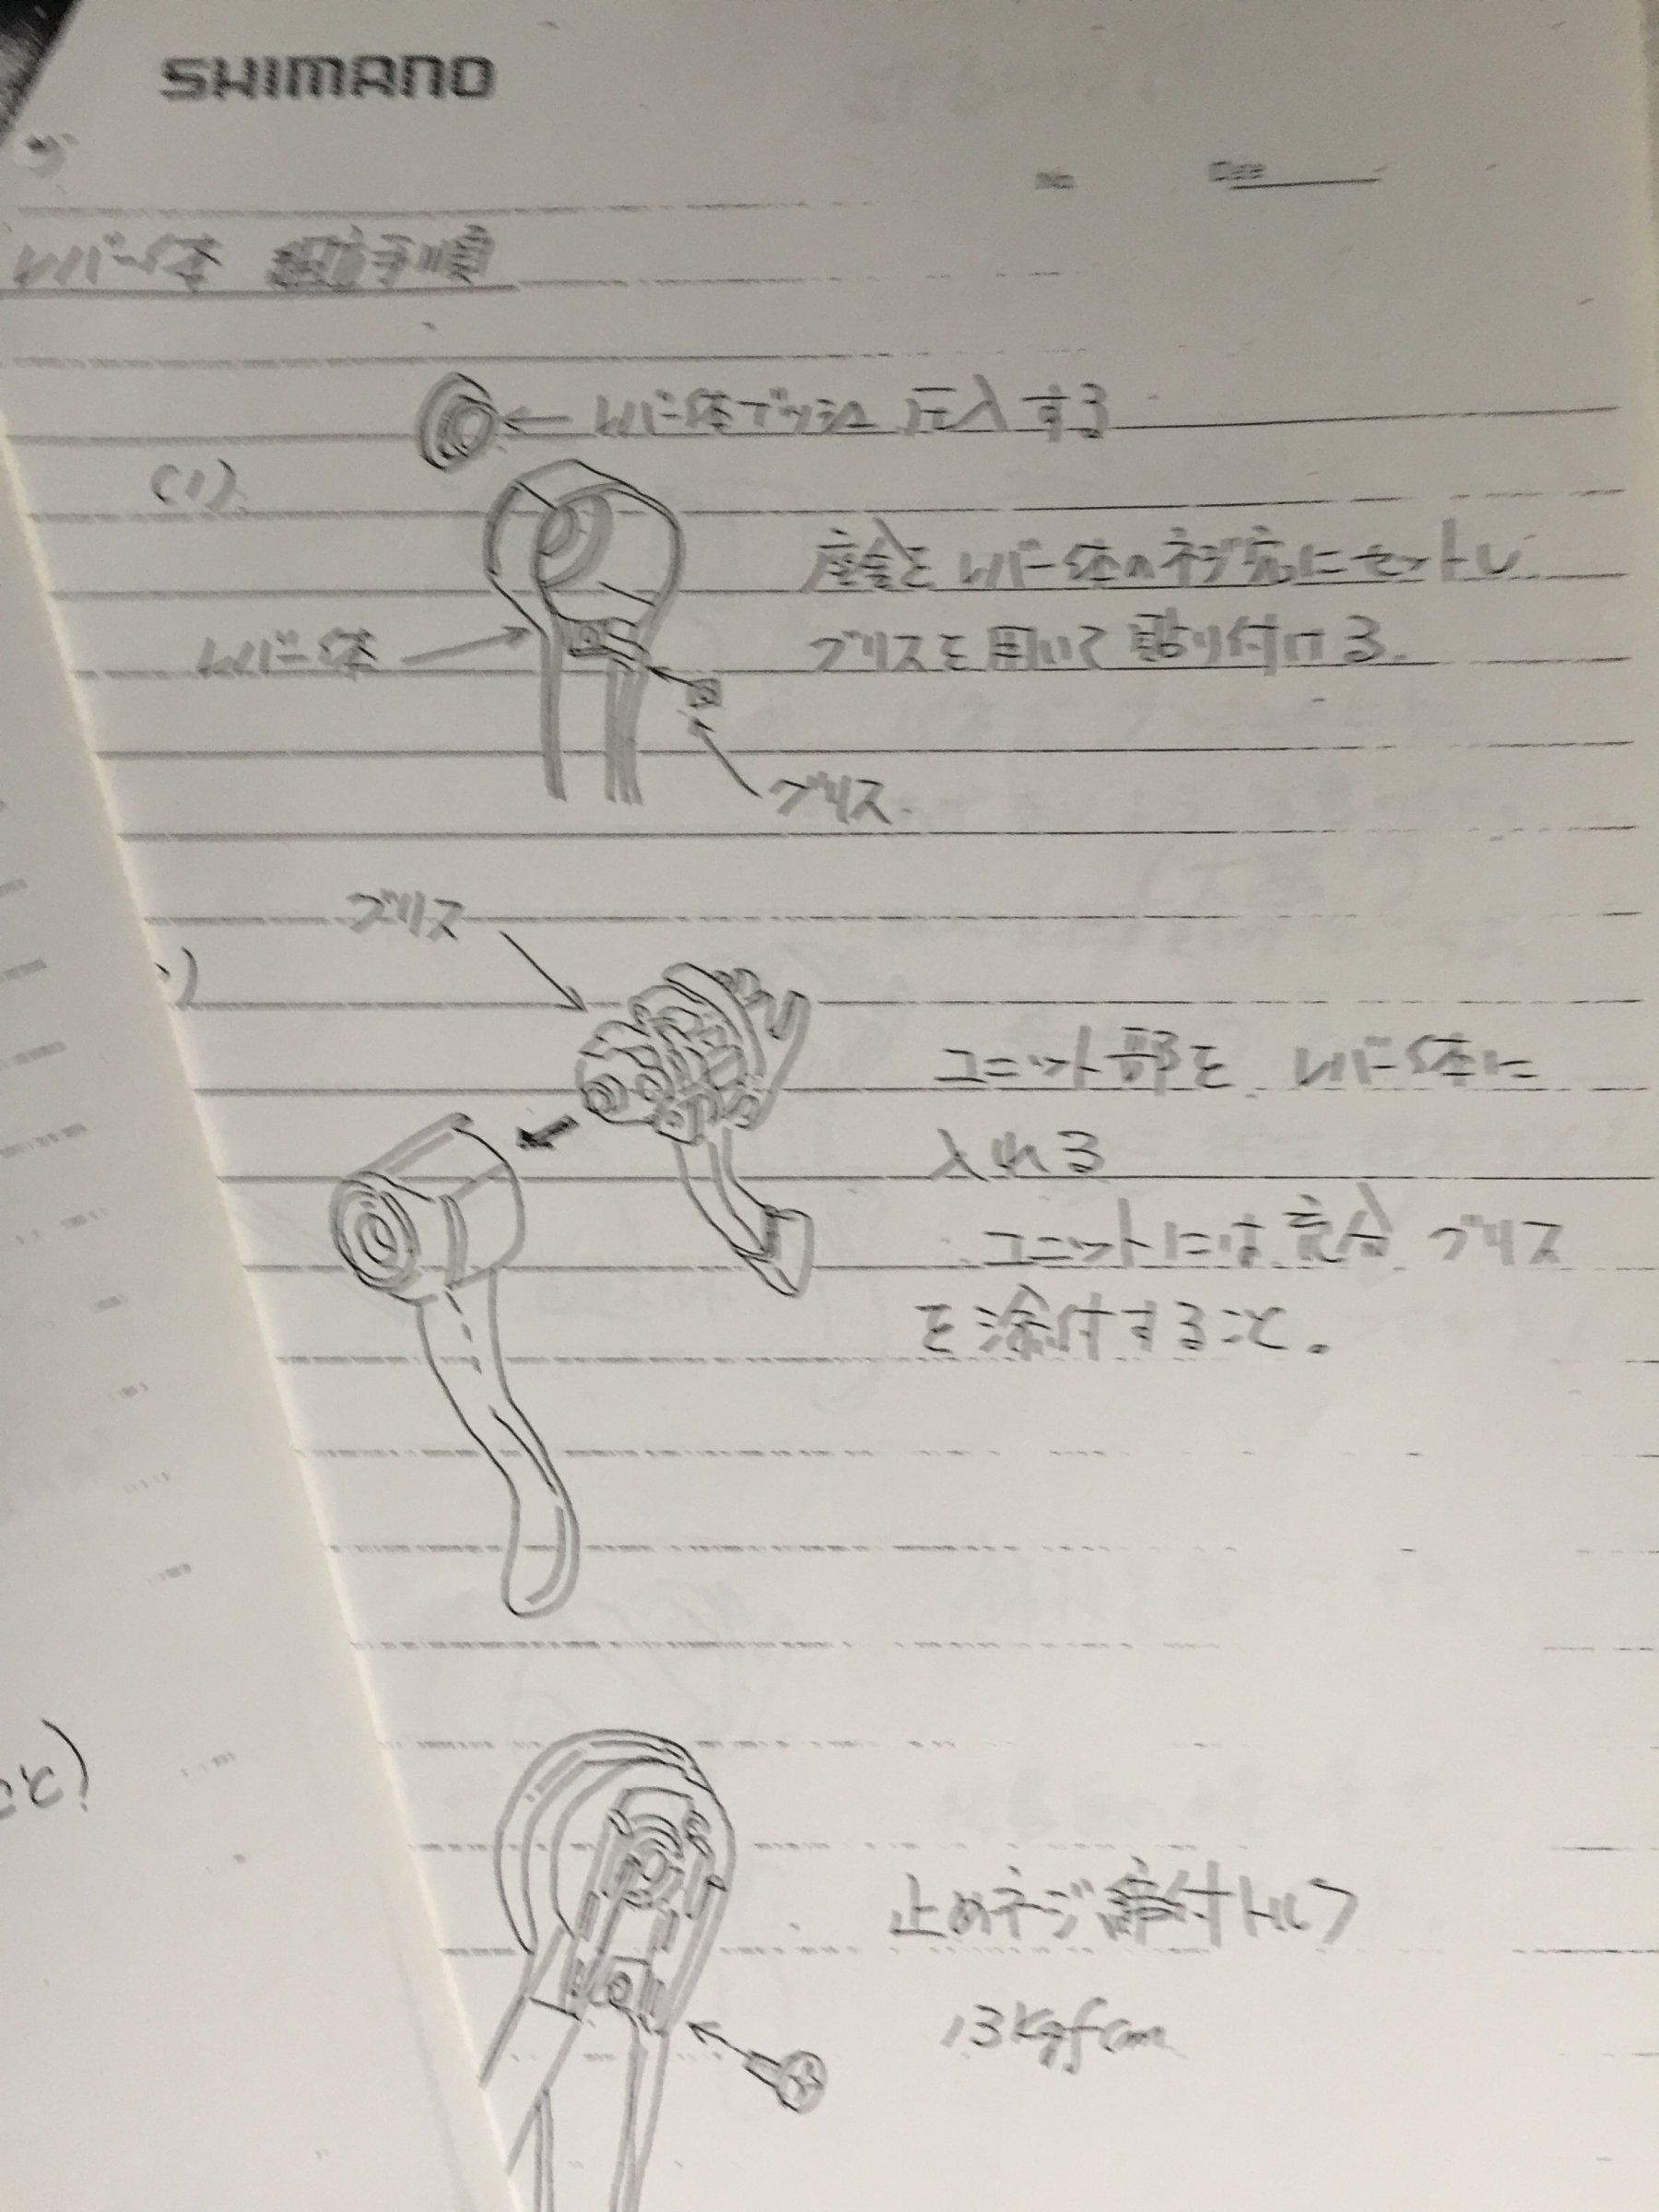 SHIMANO
No. Date
レバー体 組立手順
レバー体ブッシュ圧入する
(1)
座金をレバー体のネジ穴にセットし
グリスを用いて貼り付ける.
レバー体
グリス.
グリス
)
ユニット部を レバー体に
入れる
ユニットには充分 グリス
を塗付すること。
こと)
止めネジ締付トルク
13kgfcm